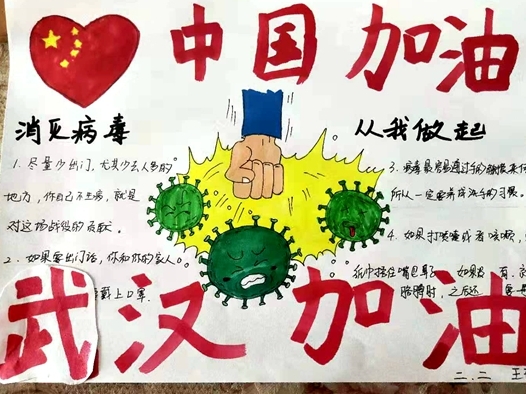 中国加油
消灭病毒
从我做起
1. 尽量少出门,尤其少去人多的
地方,你自己不生病,就是
对这场战役的贡献。
2. 如果要出门话,你和你的家人
戴上口罩.
3. 病毒最容易通过手的触摸来传
所以一定要养成洗手的习惯.
4. 如果打喷嚏或者咳嗽,
纸巾捂住嘴巴 如果没有,
胳膊肘,之后还
武汉加油
二.二 王